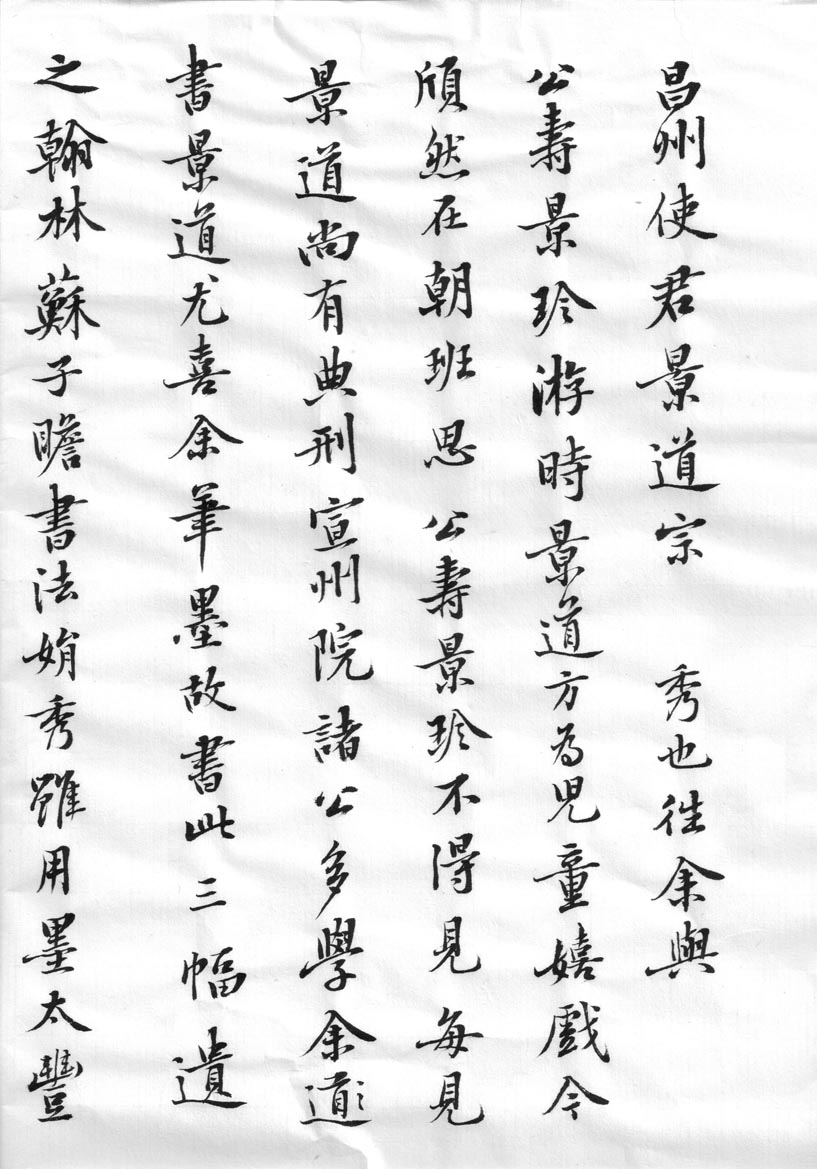 昌州使君景道宗 秀也往余與
公壽景珍游時景道方為兒童嬉戲今
頎然在朝班思 公壽景珍不得見每見
景道尚有典刑宣州院諸公多學余道
書景道尤喜余筆墨故書此三幅遺
之翰林蘇子瞻書法娟秀雖用墨太豐